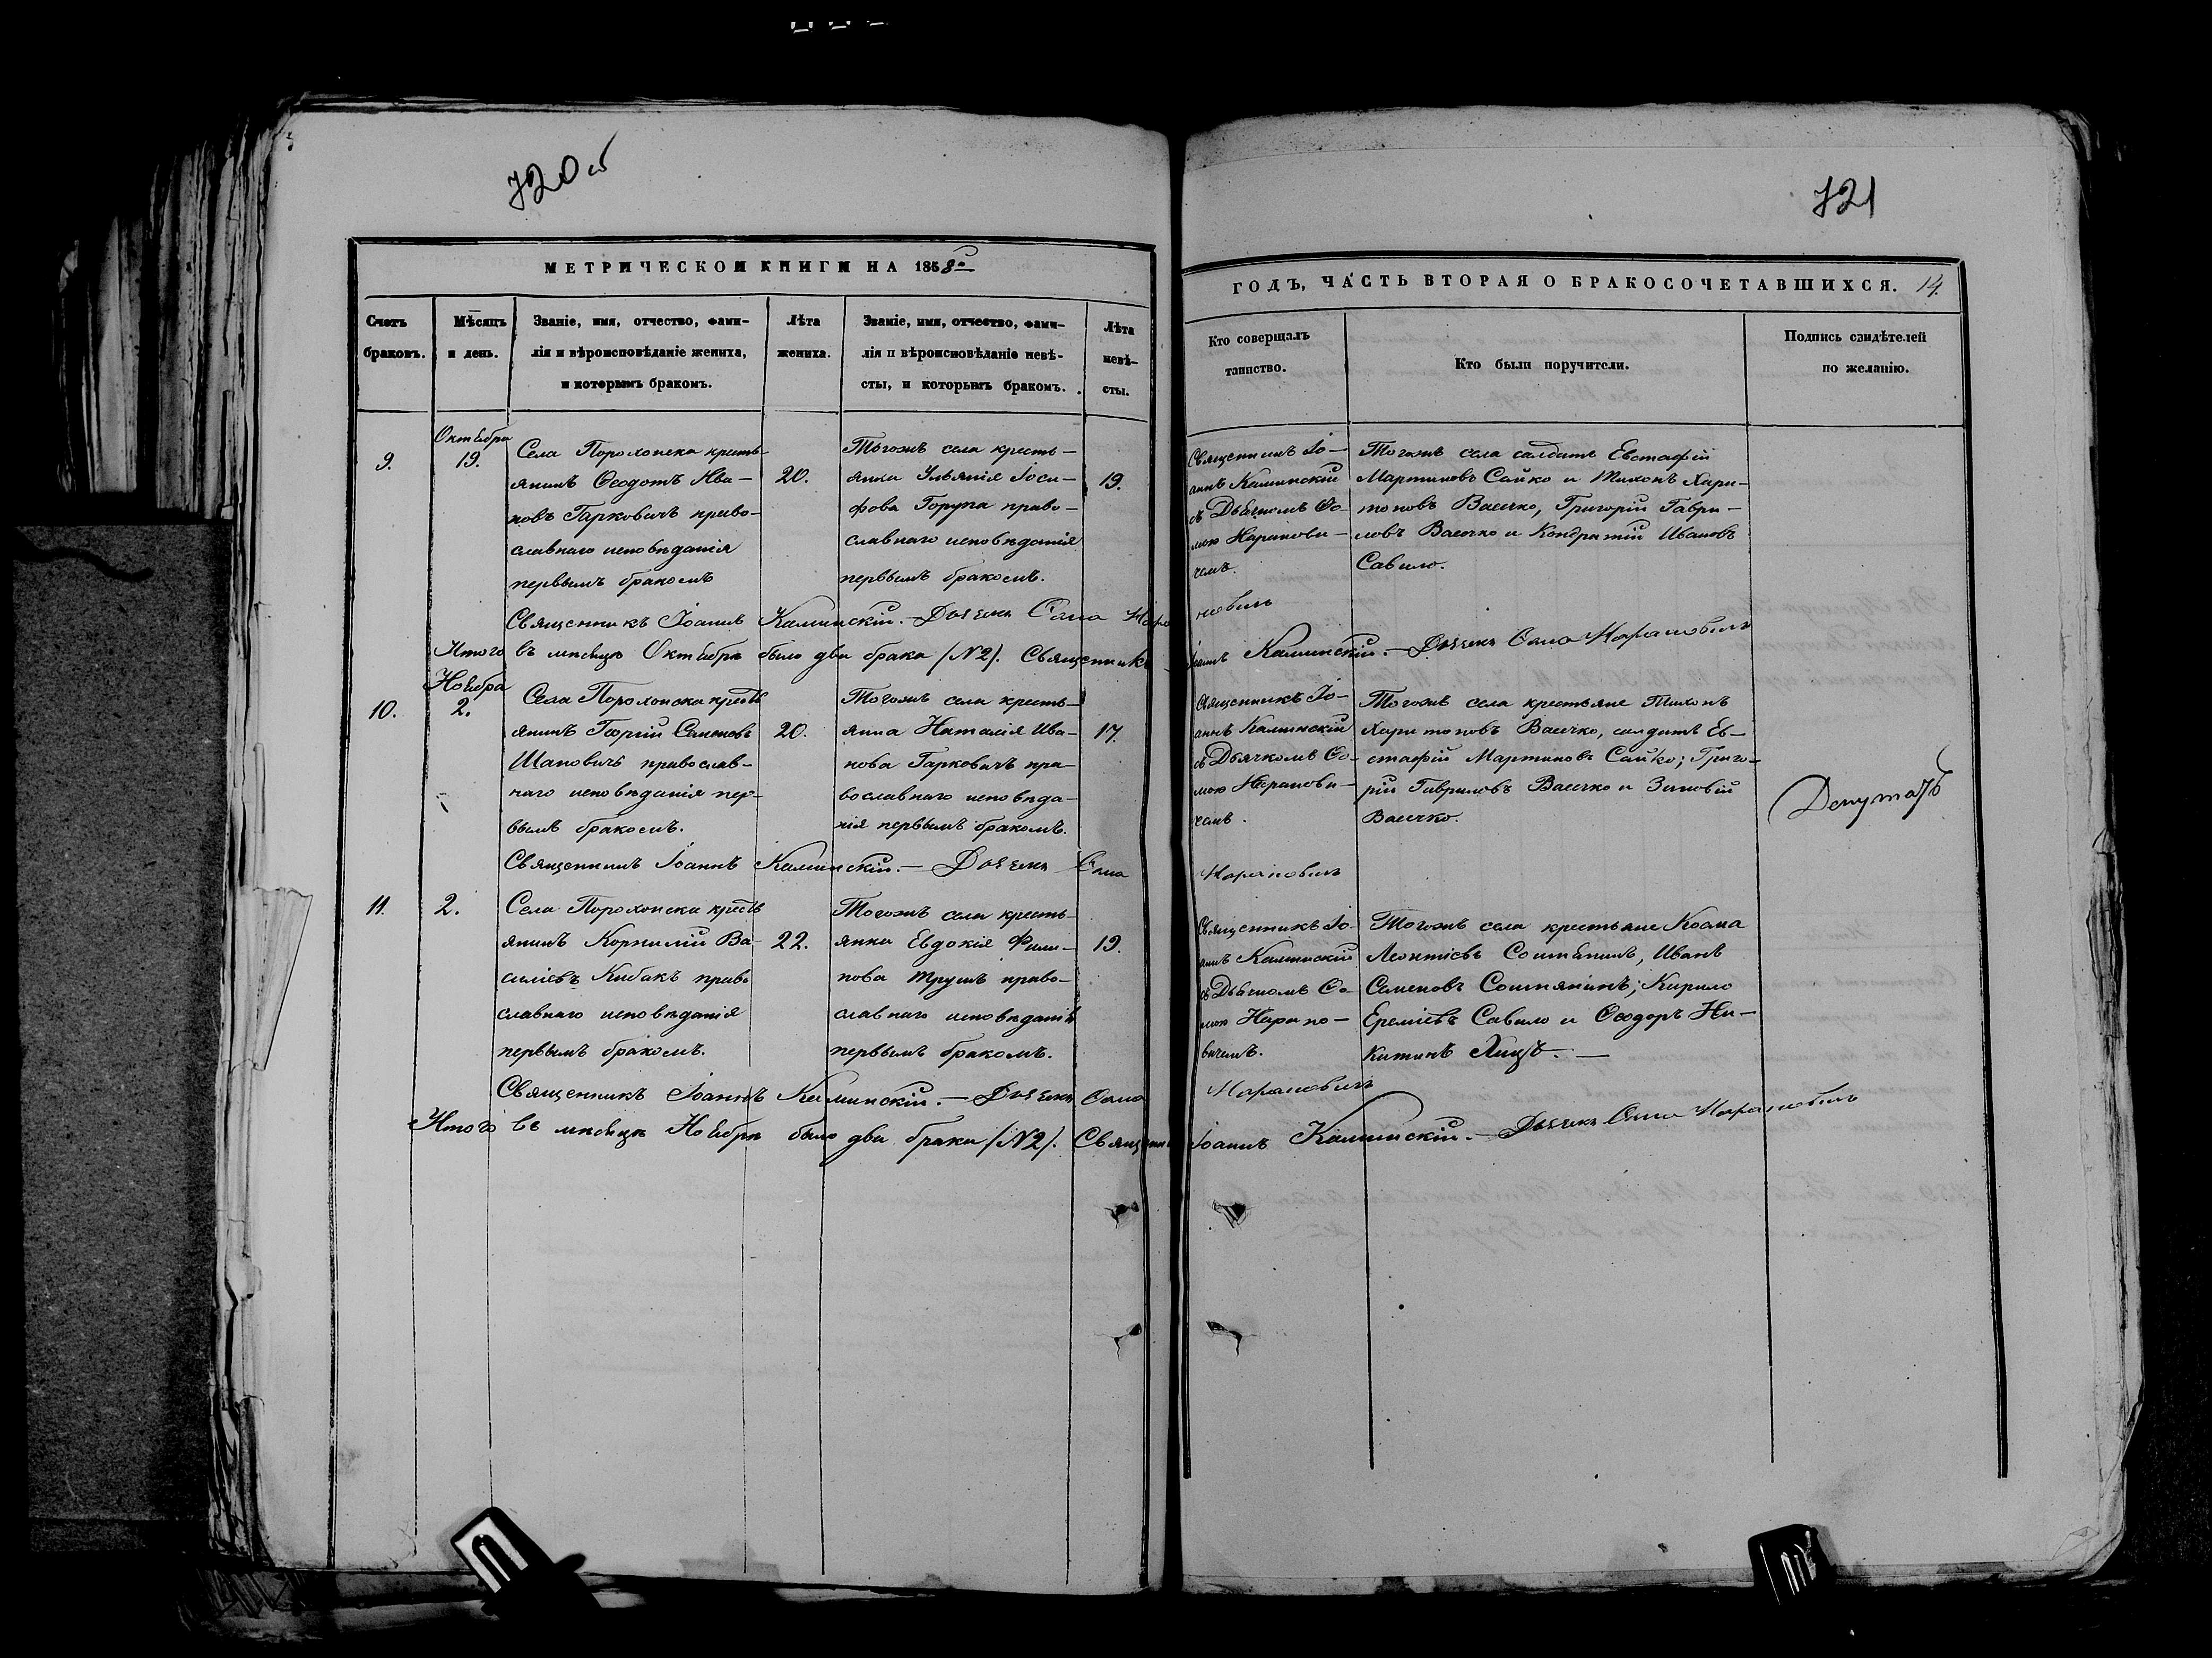 720 об
721
МЕТРИЧЕСКОЙ КНИГИ НА 1858й
ГОДЪ, ЧАСТЬ ВТОРАЯ О БРАКОСОЧЕТАВШИХСЯ. 14.
Счетъ браковъ.
Мѣсяцъ и день.
Званіе, имя, отчество, фами-
лія и вѣроисповѣданіе жениха,
и которымъ бракомъ.
Лѣта
жениха.
Званіе, имя, отчество, фами-
лія и вѣроисповѣданіе невѣ-
сты, и которымъ бракомъ.
Лѣта
невѣ-
сты.
Кто совершалъ
таинство.
Кто были поручители.
Подпись свидѣтелей
по желанію.
9.
Октября
19.
Села Порохонска кресть-
янинъ Ѳеодотъ Ива-
новъ Гарковичъ право-
славнаго исповѣданія
первымъ бракомъ
20.
Тогожъ села кресть-
янка Ульянія Іоси-
фова Горупа право-
славнаго исповѣданія
первымъ бракомъ.
19.
Священникъ Іо-
аннъ Калинскій
съ Дьячкомъ Ѳо-
мою Наранови-
чемъ.
Тогожъ села салдатъ Евстафій
Мартиновъ Сайко и Тихонъ Хари-
тоновъ Васечко, Григорій Гаври-
ловъ Васечко и Кондратій Ивановъ
Савило.
Священникъ Іоаннъ Калинскій. — Дьячекъ Ѳома Наро
новичъ
Итого въ мѣсяцѣ Октябрѣ было два брака (N2). Священникъ Іоаннъ Калинскій. — Дьячекъ Ѳома Нарановичъ
10.
Ноября
2.
Села Порохонска кресть
янинъ Георгій Симоновъ
Шановичъ православ-
наго исповѣданія пер-
вымъ бракомъ.
20.
Тогожъ села кресть-
янка Наталія Ива-
нова Гарковичъ пра-
вославнаго исповѣда-
нія первымъ бракомъ.
17.
Священникъ Іо-
аннъ Калинскій
съ Дьячкомъ Ѳо-
мою Наранови-
чемъ.
Тогожъ села крестьяне Тихонъ
Харитоновъ Васечко, салдатъ Ев-
стафій Мартиновъ Сайко; Григо-
рій Гавриловъ Васечко и Зиновій
Васечко.
Депутатъ
Священникъ Іоаннъ Калинскій. — Дьячекъ Ѳома Нарановичъ
11.
2.
Села Порохонска кресть
янинъ Корнилій Ва-
силіевъ Кибакъ право
славнаго исповѣданія
первымъ бракомъ.
22.
Тогожъ села кресть-
янка Евдокія Фили-
пова Трушъ право-
славнаго исповѣданія
первымъ бракомъ.
19.
Священникъ Іо-
аннъ Калинскій
съ Дьячкомъ Ѳо-
мою Нарано-
вичемъ.
Тогожъ села крестьяне Козма
Леонтіевъ Сошнянинъ, Иванъ
Семеновъ Сошнянинъ; Кирило
Ереміевъ Савило и Ѳеодоръ Ни-
китинъ Хицъ. —
Священникъ Іоаннъ Калинскій. — Дьячекъ Ѳома Нарановичъ
Итого въ мѣсяцѣ Ноябрѣ было два брака (N2). Священникъ Іоаннъ Калинскій. — Дьячекъ Ѳома Нарановичъ